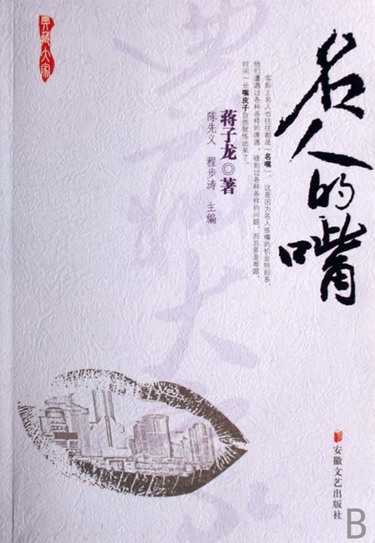 名人的嘴
实际上名人也往往都是“名嘴”，这是因为名人练嘴的机会特别多，
他们遭遇过各种各样的遭遇，碰到过各种各样的问题，而且多是难题，
时间一长嘴皮子自然就练出来了。
蒋子龙◎著
陈先义 程步涛 主编
典藏大家
安徽文艺出版社
B